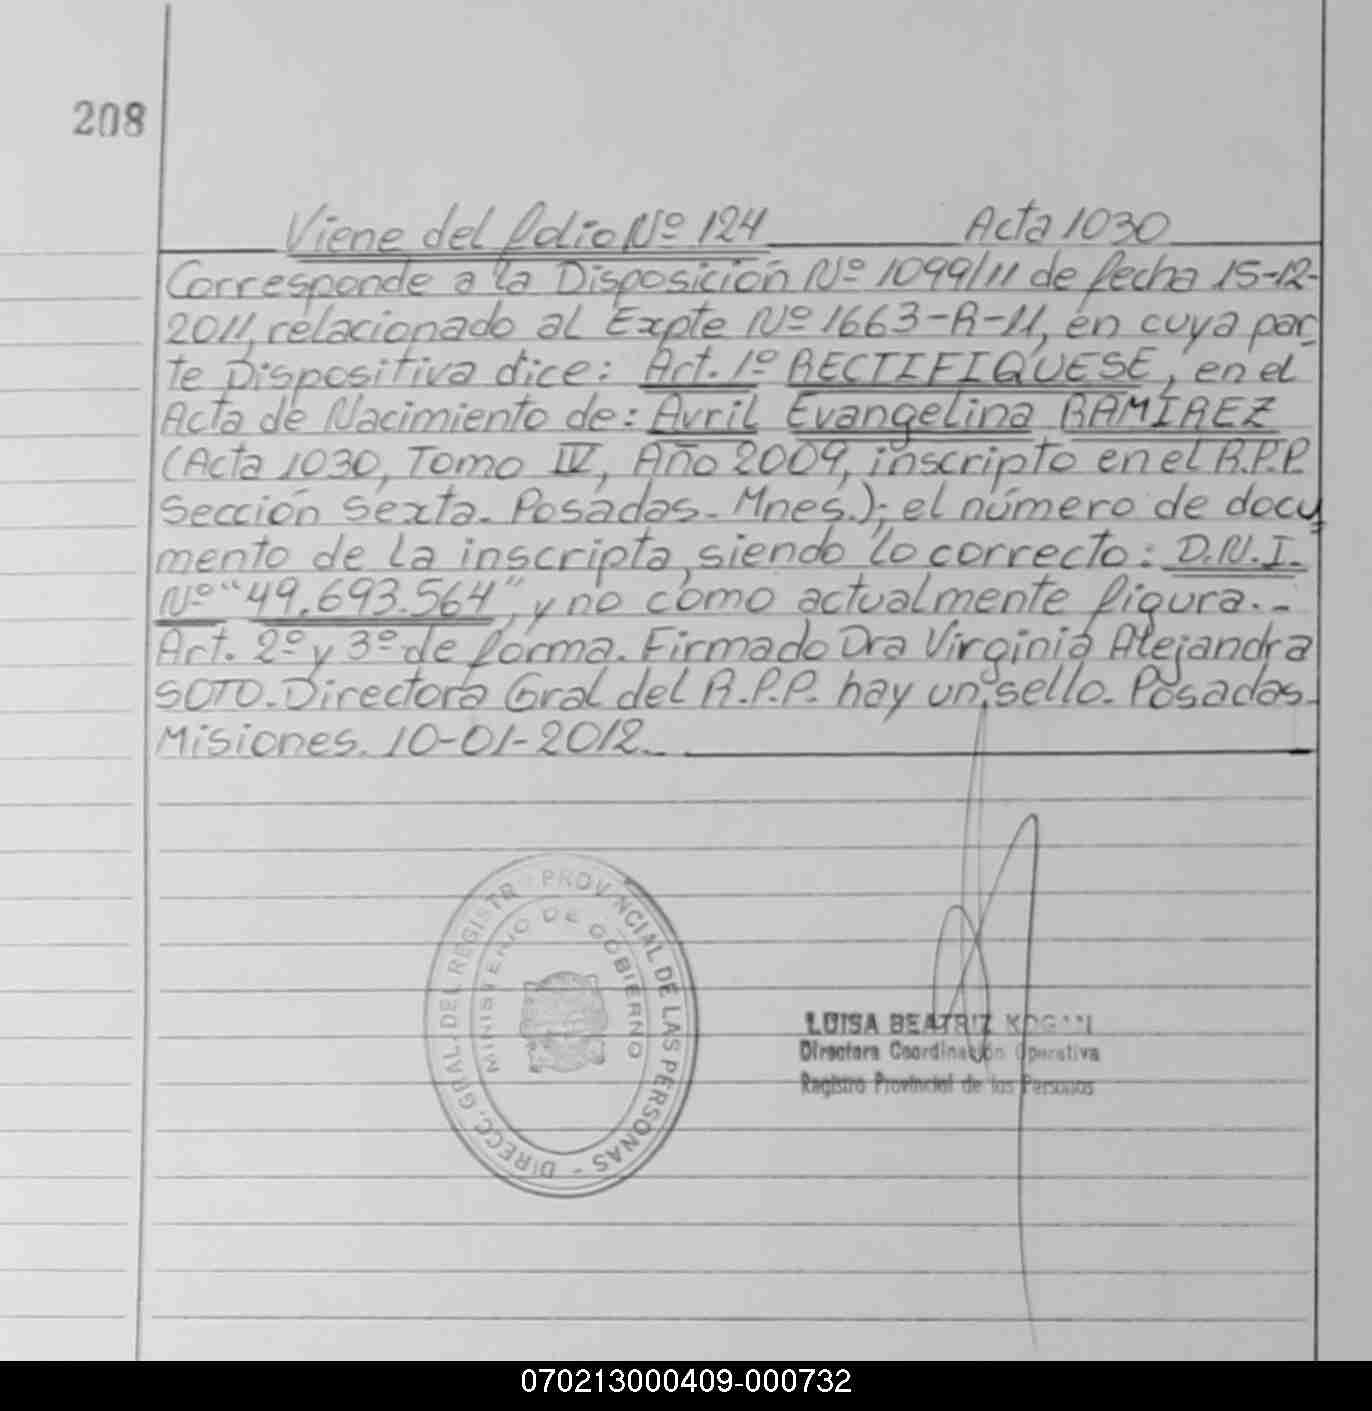 208
Viene del folio Nº 124 Acta 1030
Corresponde a la Disposición Nº 1099/11 de fecha 15-12-
2011, relacionado al Expte Nº 1663-R-11, en cuya par
te Dispositiva dice: Art. 1º RECTIFIQUESE, en el
Acta de Nacimiento de: Avril Evangelina RAMÍREZ
(Acta 1030, Tomo IV, Año 2009, inscripto en el R.P.P.
Sección Sexta. Posadas. Mnes.); el número de docu
mento de la inscripta, siendo lo correcto: D.N.I.
Nº "49.693.564", y no como actualmente figura.-
Art. 2º y 3º de forma. Firmado Dra Virginia Alejandra
SOTO. Directora Gral del R.P.P. hay un sello. Posadas.
Misiones. 10-01-2012.
DIRECC. GRAL. DEL REGISTR PROVINCIAL DE LAS PERSONAS -
MINISTERIO DE GOBIERNO
LUISA BEATRIZ
Directora Coordinación Operativa
Registro Provincial de las Personas
070213000409-000732